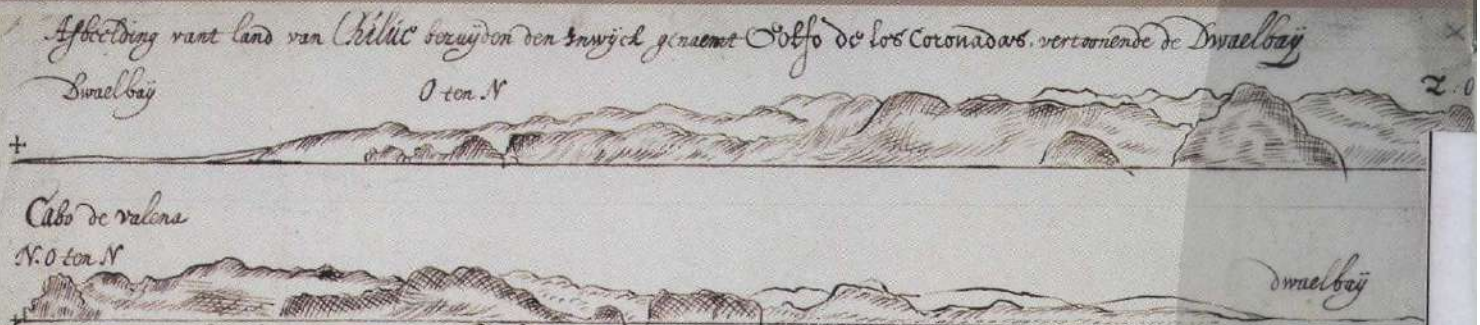 Afbeelding vant land van Chilue bezuyden den Inwijck genaemt Golfo de los Coronadas. vertoonende de Dwaelbaÿ
Dwaelbaÿ O ten N Z.O
Cabo de valena
N.O ten N
dwaelbaÿ